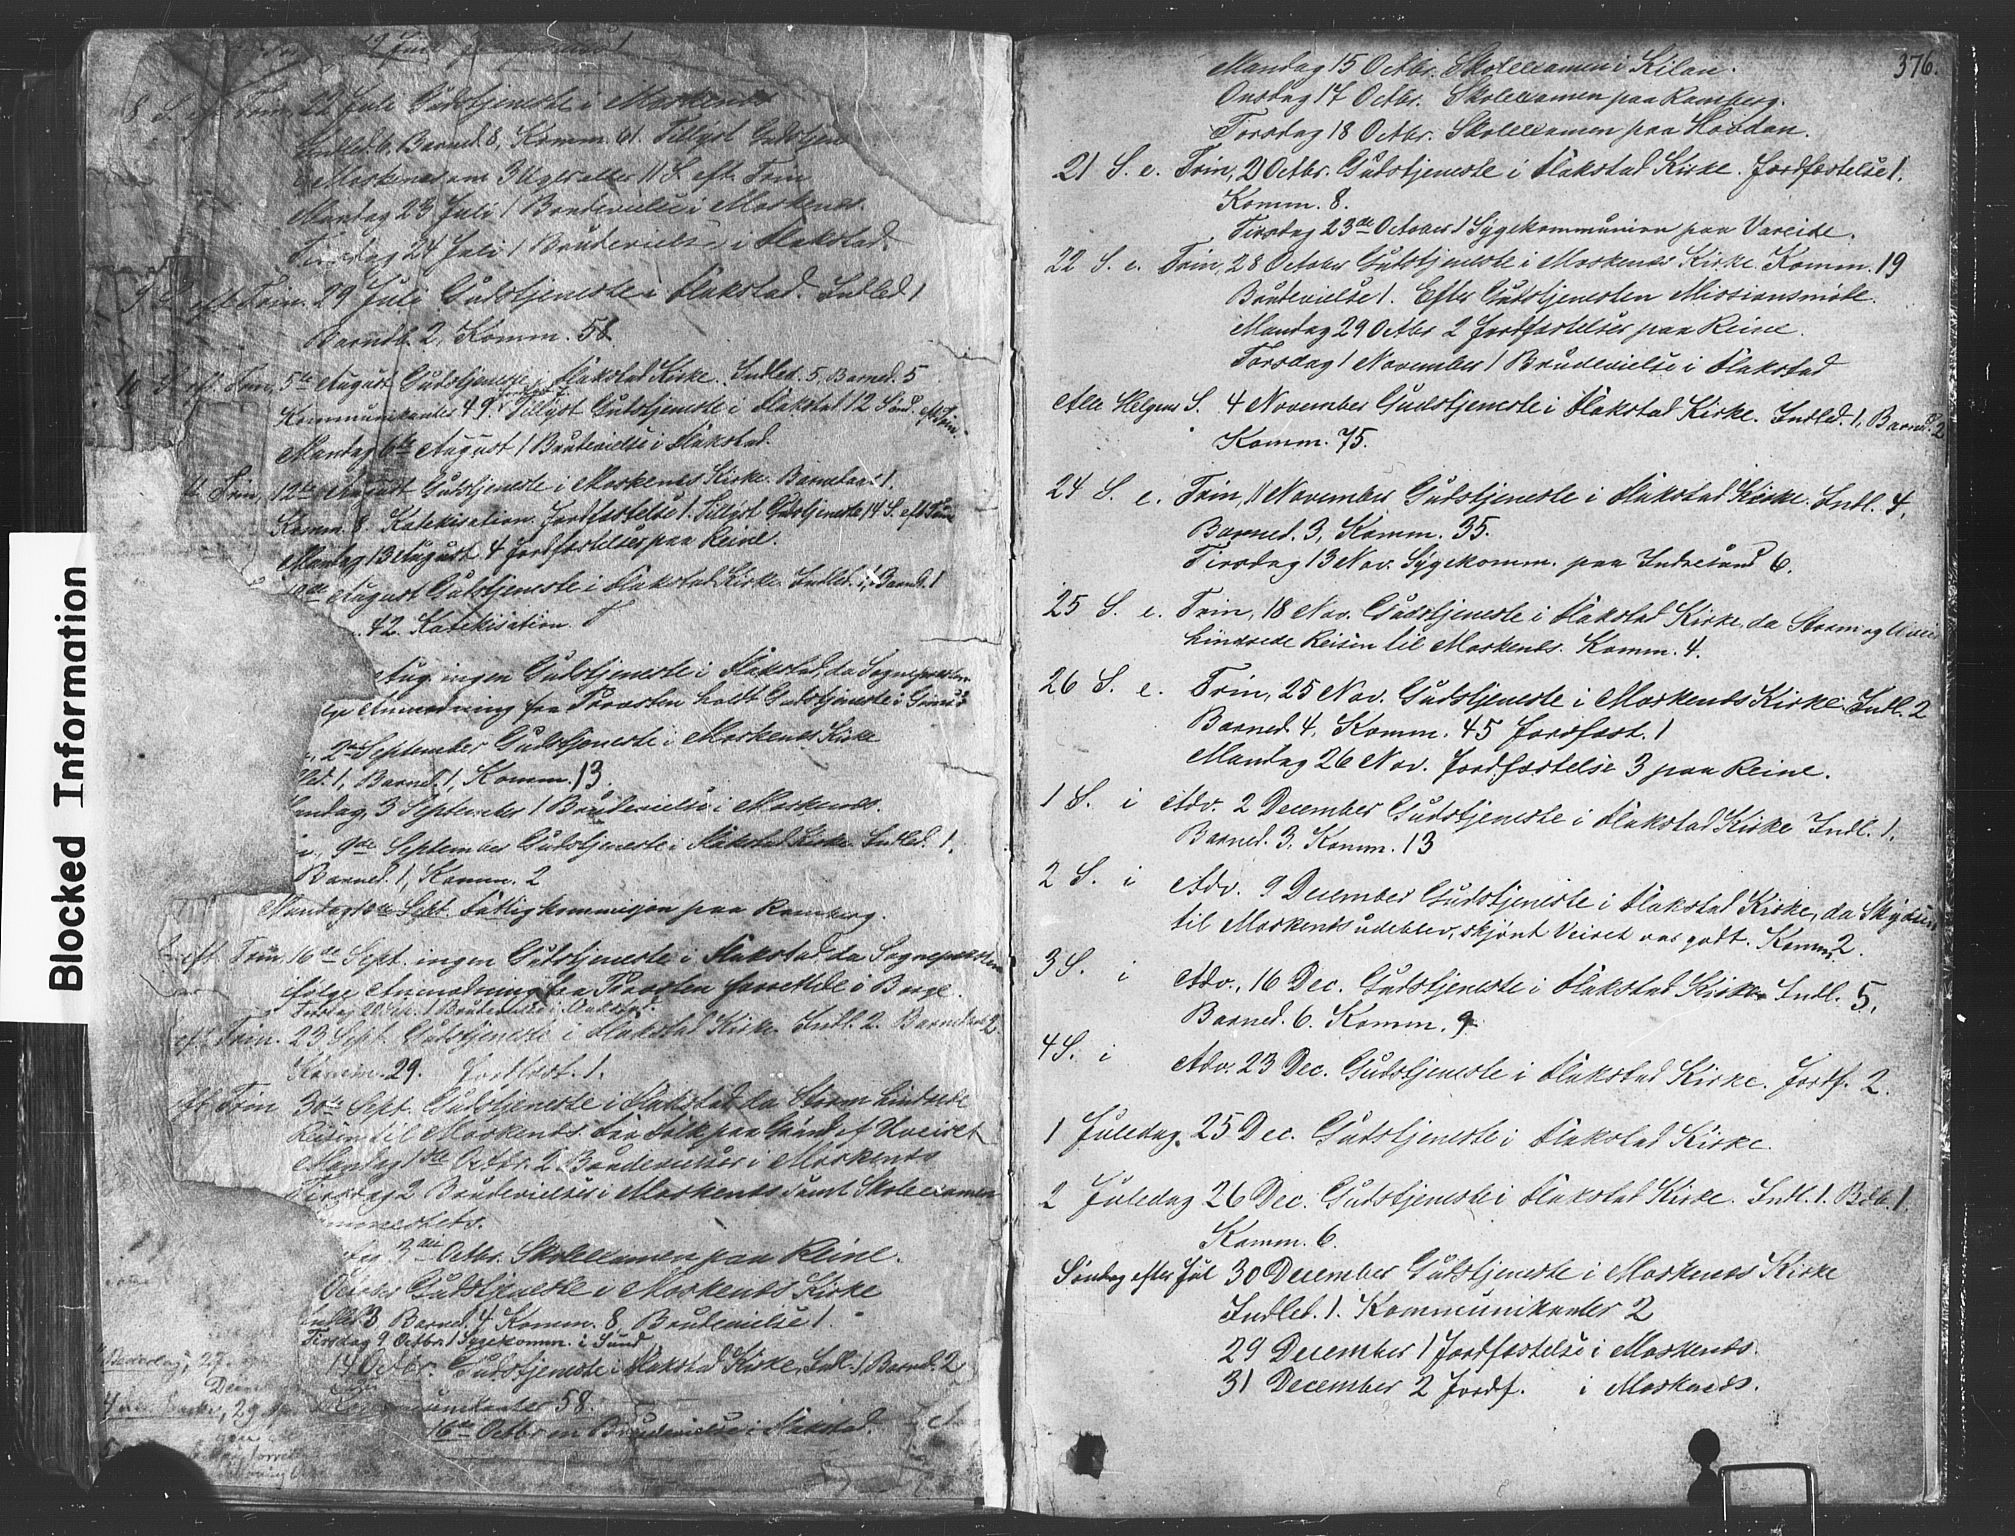 8 S. eft. Trin. 22 Juli Gudstjeneste i Moskenes
Indled. 6. Barned. 8, Komm. 61. Tillyst Gudstjen
i Moskenes om 3 Uger eller 11 S. eft. Trin
Mandag 23 Juli 1 Brudevielse i Moskenes.
Tirsdag 24 Juli 1 Brudevielse i Flakstad
9 S. eft. Trin. 29 Juli Gudstjeneste i Flakstad. Indled 1
Barndb. 2, Komm. 58
10 S. eft. Trin, 5te August Gudstjeneste i Flakstad Kirke. Indled. 5, Barned. 5
Kommunikanter 49. Tillyst Gudstjeneste i Flakstad 12 Sønd. eft Trin.
Mandag 6te August 1 Brudevielse i Flakstad.
Trin, 12te August Gudstjeneste i Moskenes Kirke. Barnedaab 1.
Komm. 8. Katekisation. Jordfæstelse 1. Tillyst Gudstjeneste 14 S. eft Trin
Mandag 13 August 4 Jordfæstelser paa Reine.
August Gudstjeneste i Flakstad Kirke. Indled. 1, Barned. 1
. 42. Katekisation.
Aug. ingen Gudstjeneste i Flakstad, da Sognepræsten
Anmodning fra Provsten holdt Gudstjeneste i
, 2den September Gudstjeneste i Moskenes Kirke
1, Barned. 1, Komm. 13.
ndag 3 September 1 Brudevielse i Moskenes.
, 9de September Gudstjeneste i Flakstad Kirke Indled. 1.
Barned. 1, Komm. 2
Mandag 10de Sept. Fattigkommisjon paa Ramberg.
eft. Trin 16de Sept. ingen Gudstjeneste i Flakstad da Sognepræsten
ifølge Anmodning fra Provsten forrettede i Borge.
Torsdag 20 Sept. 1 Brudevielse i Flakstad.
eft. Trin. 23 Sept. Gudstjeneste i Flakstad Kirke. Indl. 2. Barnedaab 2
Komm. 29. Jordfæst. 1.
eft. Trin 30te Sept. Gudstjeneste i Flakstad da Storm hindrede
Reisen til Moskenes. Faa Folk paa Grund af Uveiret
Mandag 1ste Octbr. 2 Brudevielser i Moskenes
Tirsdag 2 Brudevielser i Moskenes samt Skolexamen
sammesteds.
3die Octbr. Skolexamen paa Reine.
October Gudstjeneste i Moskenes Kirke
Indled 3. Barned. 4. Komm. 8. Brudevielse 1.
Tirsdag 9. Octbr. 1 Sygekomm. i Sund
14 Octbr. Gudstjeneste i Flakstad Kirke, Indl. 1 Barned. 2
Kommunikanter 58.
16de Octbr en Brudevielse i Flakstad.
Blocked Information
376.
Mandag 15 Octbr. Skolexamen i Kilan.
Onsdag 17 Octbr. Skolexamen paa Ramberg.
Torsdag 18 Octbr. Skolexamen paa Hovdan.
21 S. e. Trin, 21 Octbr. Gudstjeneste i Flakstad Kirke. Jordfæstelse 1.
Komm. 8.
Tirsdag 23de October 1 Sygekommunion paa Vareide.
22 S. e. Trin, 28 October Gudstjeneste i Moskenes Kirke. Komm. 19
Brudevielse 1. Efter Gudstjenesten Missionsmøde.
Mandag 29 Octbr 2 Jordfæstelser paa Reine.
Torsdag 1 November 1 Brudevielse i Flakstad
Alle Helgens S. 4 November Gudstjeneste i Flakstad Kirke. Indled. 1, Barned. 2
Komm. 75.
24 S. e. Trin, 11 November Gudstjeneste i Flakstad Kirke. Indl. 4,
Barned. 3, Komm. 35.
Tirsdag 13 Nov. Sygekomm. paa Indresund 6.
25 S. e. Trin, 18 Nov. Gudstjeneste i Flakstad Kirke, da Storm og Uveir
hindrede Reisen til Moskenes. Komm. 4.
26 S. e. Trin, 25 Nov. Gudstjeneste i Moskenes Kirke. Indl. 2
Barned. 4, Komm. 45 Jordfæst. 1
Mandag 26 Nov. Jordfæstelse 3 paa Reine.
1 S. i Adv. 2 December Gudstjeneste i Flakstad Kirke Indl. 1.
Barned. 3, Komm. 13
2 S. i Adv. 9 December Gudstjeneste i Flakstad Kirke, da Skydsen
til Moskenes udeblev, skjønt Veiret var godt. Komm. 2.
3 S. i Adv., 16 Dec. Gudstjeneste i Flakstad Kirke Indl. 5,
Barned. 6. Komm. 9
4 S. i Adv. 23 Dec. Gudstjeneste i Flakstad Kirke. Jordf. 2.
1 Juledag. 25 Dec. Gudstjeneste i Flakstad Kirke.
2 Juledag 26 Dec. Gudstjeneste i Flakstad Kirke. Indl. 1. Bdb. 1.
Komm. 6.
Søndag efter Jul 30 December Gudstjeneste i Moskenes Kirke
Indled. 1. Kommunikanter 2
29 December 1 Jordfæstelse i Moskenes.
31 December 2 Jordf. i Moskenes.